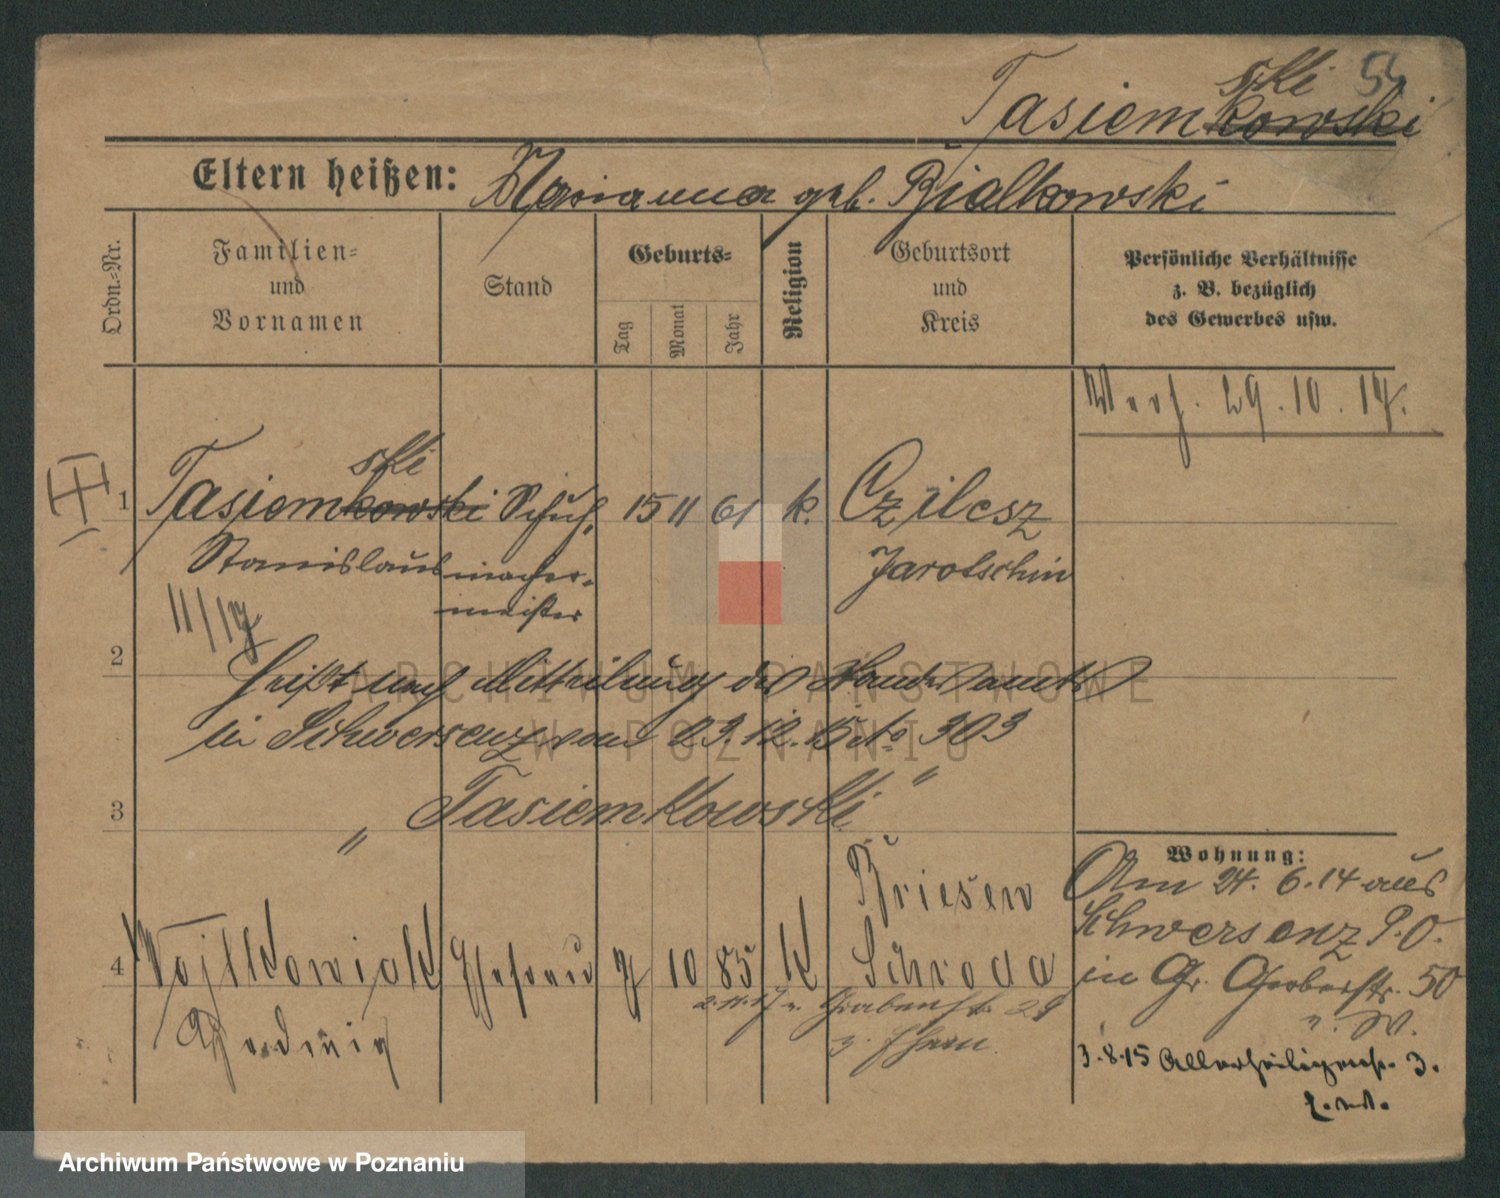 54
ski
Tasiemkowski
Eltern heißen: Marianna geb. Bialkowski
Ordn.-Nr.
Familien- und Vornamen
Stand
Geburts-
Tag
Monat
Jahr
Religion
Geburtsort und Kreis
Persönliche Verhältnisse z. B. bezüglich des Gewerbes usw.
29.10.14.
ski
1 Tasiemkowski Schuh- 15 11 61 k. Czilesz
Stanislaus macher- Jarotschin
meister
11/17
2
heißt nach Mitteilung des Standesamts
in Schwersenz vom 23.12.15 No 303
3 "Tasiemkowski"
Wohnung:
Am 24.6.14 aus
Schwersenz P.O.
in Gr. Gerberstr. 50
Briesen
4 Wojtkowiak Ehefrau 10 85 K Schroda
Hedwig
2.11.17 v. Grabenstr. 29
z. Ehem.
3.8.15 Allerheiligenstr. 3.
ARCHIWUM PAŃSTWOWE
W POZNANIU
Archiwum Państwowe w Poznaniu